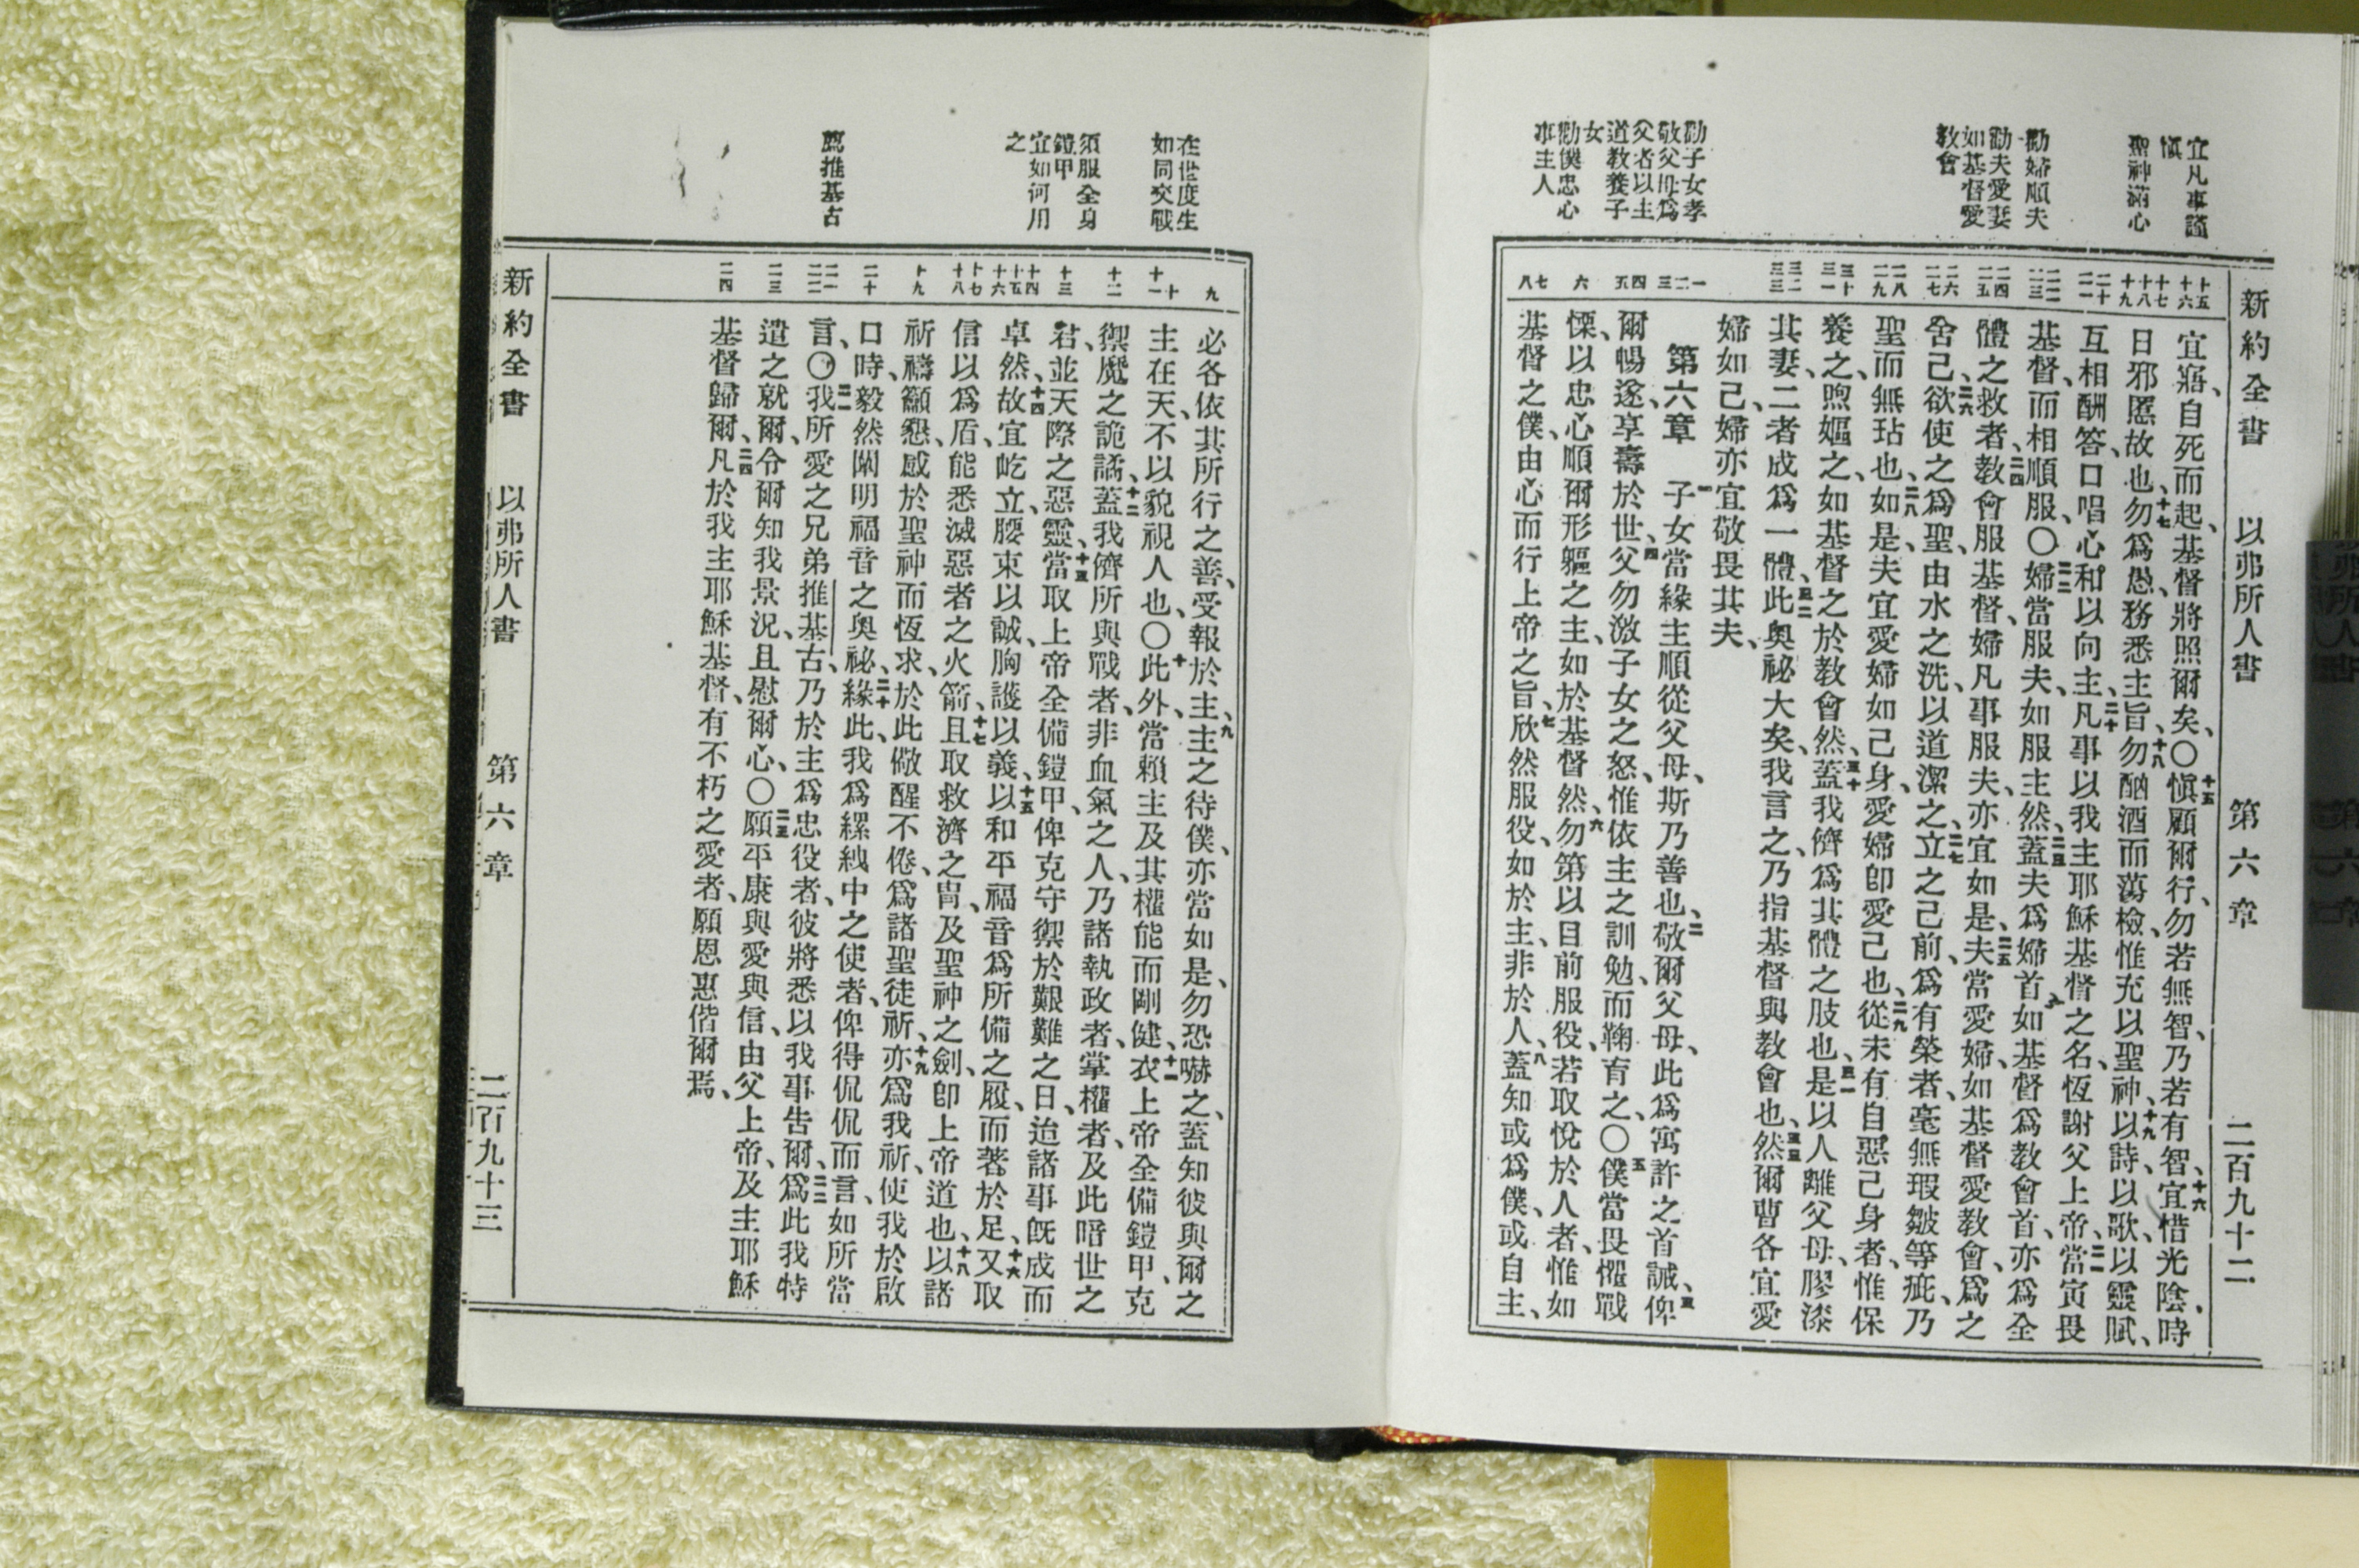 新約全書　以弗所人書　第六章　二百九十二
宜凡事謹
愼
聖神滿心
勸婦順夫
勸夫愛妻
如基督愛
教會
勸子女孝
敬父母爲
父者以主
道教養子
女
勸僕忠心
事主人
十五
十六
十七
十八
十九
二十
二一
二二
二三
二四
二五
二六
二七
二八
二九
三十
三一
三二
三三
一
二
三
四
五
六
七
八
宜寤、自死而起、基督將照爾矣、〇十五愼顧爾行、勿若無智、乃若有智、十六宜惜光陰、時
日邪慝故也、十七勿爲愚、務悉主旨、十八勿酗酒而蕩檢、惟充以聖神、十九以詩、以歌、以靈賦、
互相酬答、口唱心和以向主、二十凡事以我主耶穌基督之名、恆謝父上帝、二一當寅畏
基督、而相順服、〇二二婦當服夫、如服主然、二三蓋夫爲婦首、如基督爲教會首、亦爲全
體之救者、二四教會服基督、婦凡事服夫、亦宜如是、二五夫當愛婦、如基督愛教會、爲之
舍己、二六欲使之爲聖、由水之洗、以道潔之、二七立之己前、爲有榮者、毫無瑕皺等疵、乃
聖而無玷也、二八如是、夫宜愛婦如己身、愛婦卽愛己也、二九從未有自惡己身者、惟保
養之、煦嫗之、如基督之於教會然、三十蓋我儕爲其體之肢也、三一是以人離父母、膠漆
其妻、二者成爲一體、三二此奧祕大矣、我言之、乃指基督與教會也、三三然爾曹各宜愛
婦如己、婦亦宜敬畏其夫、
第六章　一子女當緣主順從父母、斯乃善也、二敬爾父母、此爲寓許之首誡、三俾
爾暢遂、享壽於世、四父勿激子女之怒、惟依主之訓勉、而鞠育之、〇五僕當畏懼戰
慄、以忠心順爾形軀之主、如於基督然、六勿第以目前服役、若取悅於人者、惟如
基督之僕、由心而行上帝之旨、七欣然服役、如於主、非於人、八蓋知或爲僕、或自主、
新約全書　以弗所人書　第六章　二百九十三
在世度生
如同交戰
須服全身
鎧甲
宜如何用
之
薦推基古
九
十
十一
十二
十三
十四
十五
十六
十七
十八
十九
二十
二一
二二
二三
二四
必各依其所行之善、受報於主、九主之待僕、亦當如是、勿恐嚇之、蓋知彼與爾之
主在天、不以貌視人也、〇十此外、當賴主及其權能而剛健、十一衣上帝全備鎧甲、克
禦魔之詭譎、十二蓋我儕所與戰者、非血氣之人、乃諸執政者、掌權者、及此暗世之
君、並天際之惡靈、十三當取上帝全備鎧甲、俾克守禦於艱難之日、迨諸事旣成而
卓然、十四故宜屹立、腰束以誠、胸護以義、十五以和平福音爲所備之履、而著於足、十六又取
信以爲盾、能悉滅惡者之火箭、十七且取救濟之冑、及聖神之劍、卽上帝道也、十八以諸
祈禱籲懇、感於聖神而恆求、於此儆醒不倦、爲諸聖徒祈、十九亦爲我祈、使我於啟
口時、毅然闡明福音之奧祕、二十緣此、我爲縲絏中之使者、俾得侃侃而言、如所當
言、〇二一我所愛之兄弟推基古、乃於主爲忠役者、彼將悉以我事告爾、二二爲此我特
遣之就爾、令爾知我景況、且慰爾心、〇二三願平康與愛與信、由父上帝、及主耶穌
基督歸爾、二四凡於我主耶穌基督、有不朽之愛者、願恩惠偕爾焉、